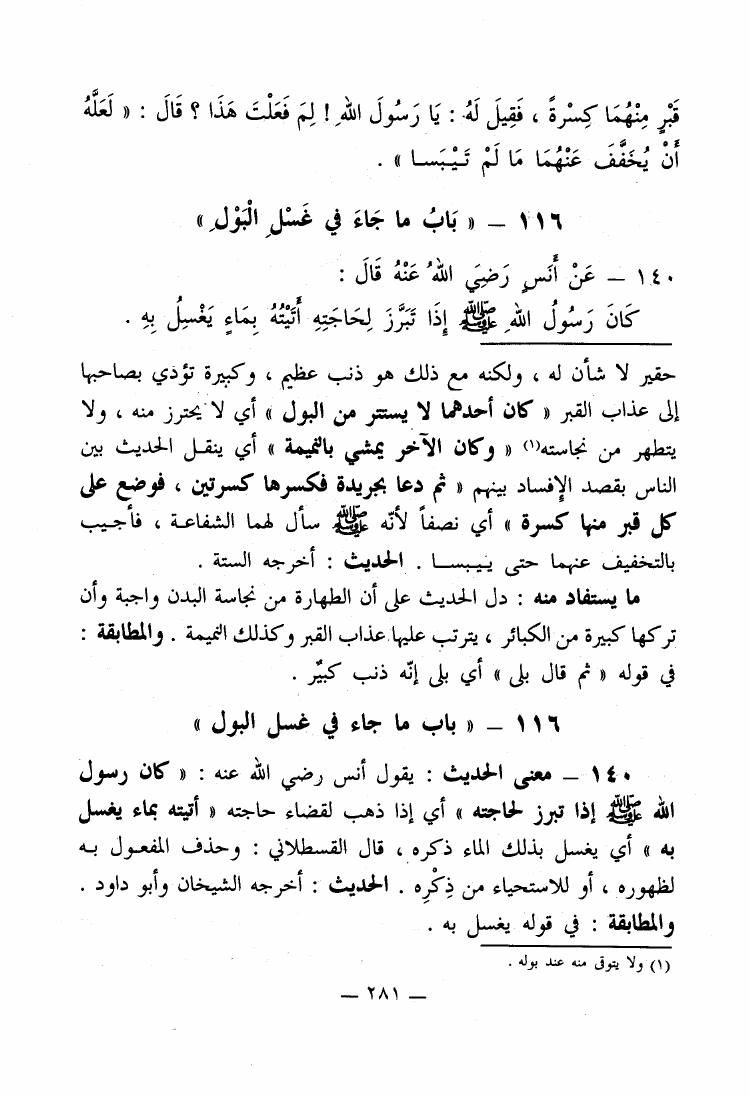 قَبْرٍ مِنْهُمَا كِسْرَةً ، فَقِيلَ لَهُ : يَا رَسُولَ اللهِ ! لِمَ فَعَلْتَ هَذَا ؟ قَالَ : « لَعَلَّهُ
أَنْ يُخَفَّفَ عَنْهُمَا مَا لَمْ تَيْبَسا » .
١١٦ – « بَابُ ما جَاءَ في غَسْلِ الْبَوْلِ »
١٤٠ – عَنْ أَنَسٍ رَضِيَ اللهُ عَنْهُ قَالَ :
كَانَ رَسُولُ اللهِ ﷺ إِذَا تَبَرَّزَ لِحَاجَتِهِ أَتَيْتُهُ بِمَاءٍ يَغْسِلُ بِهِ .
حقير لا شأن له ، ولكنه مع ذلك هو ذنب عظيم ، وكبيرة تؤدي بصاحبها
إلى عذاب القبر « كان أحدهما لا يستتر من البول » أي لا يحترز منه ، ولا
يتطهر من نجاسته(١) « وكان الآخر يمشي بالنميمة » أي ينقل الحديث بين
الناس بقصد الإفساد بينهم « ثم دعا بجريدة فكسرها كسرتين ، فوضع على
كل قبر منها كسرة » أي نصفاً لأنّه ﷺ سأل لهما الشفاعة ، فأجيب
بالتخفيف عنهما حتى ييبسا . الحديث : أخرجه الستة .
ما يستفاد منه : دل الحديث على أن الطهارة من نجاسة البدن واجبة وأن
تركها كبيرة من الكبائر ، يترتب عليها عذاب القبر وكذلك النميمة . والمطابقة :
في قوله « ثم قال بلى » أي بلى إنّه ذنب كبيرٌ .
١١٦ – « باب ما جاء في غسل البول »
١٤٠ – معنى الحديث : يقول أنس رضي الله عنه : « كان رسول
الله ﷺ إذا تبرز لحاجته » أي إذا ذهب لقضاء حاجته « أتيته بماء يغسل
به » أي يغسل بذلك الماء ذكره ، قال القسطلاني : وحذف المفعول به
لظهوره ، أو للاستحياء من ذِكْرِه . الحديث : أخرجه الشيخان وأبو داود .
والمطابقة : في قوله يغسل به .
(١) ولا يتوقى منه عند بوله .
— ٢٨١ —